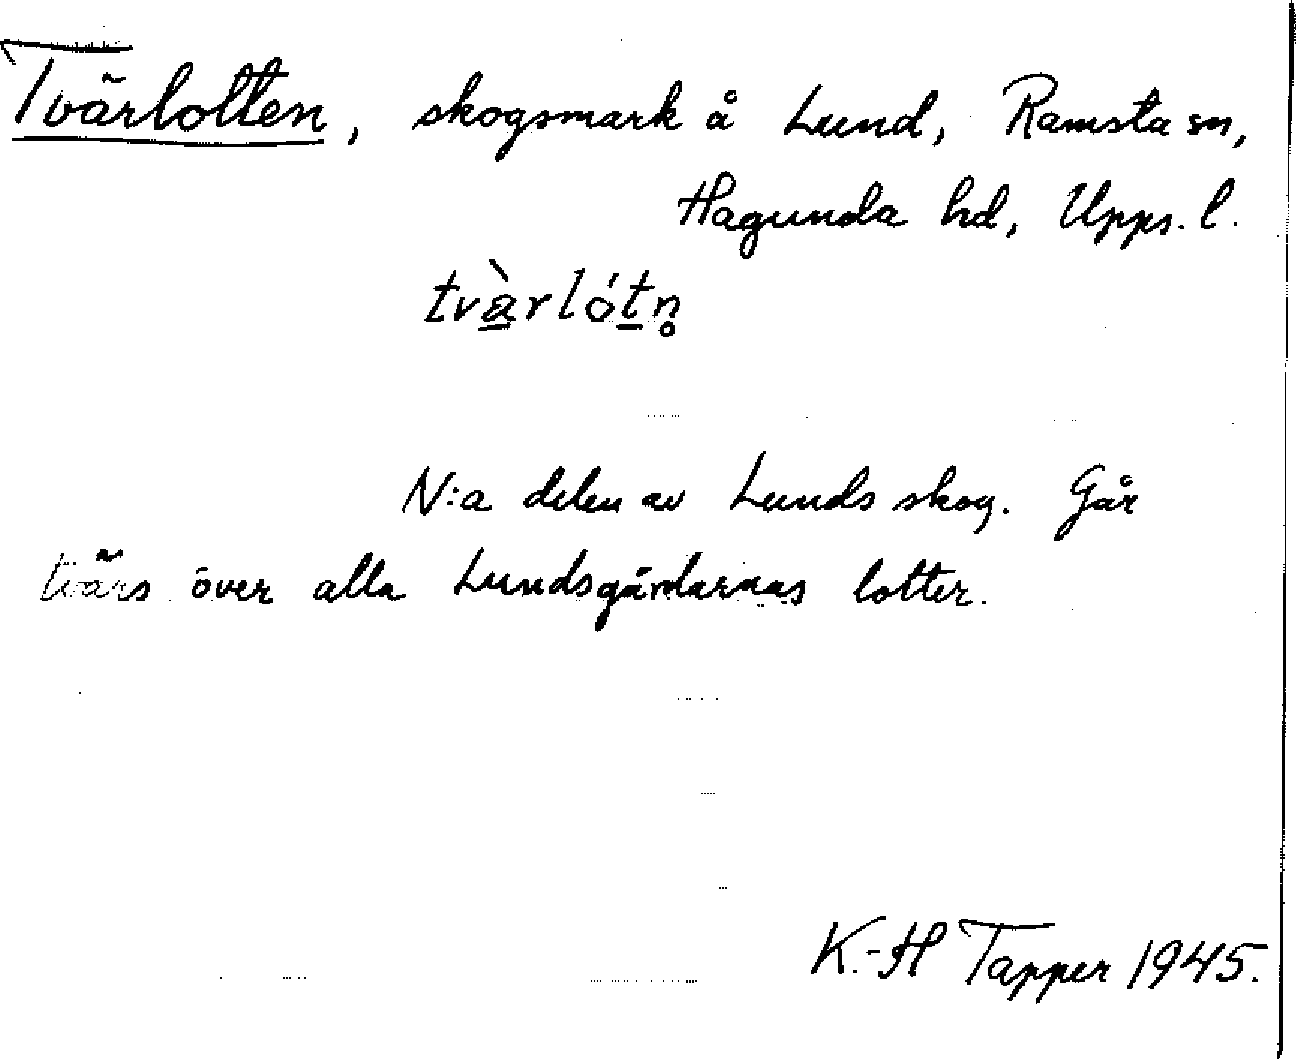 Tvärlotten, skogsmark å Lund, Ramsta sn,
Hagunda hd, Upps. l.
tvàrlótn̥
N:a delen av Lunds skog. Går
tvärs över alla Lundsgårdarnas lotter.
K.-H Tapper 1945.